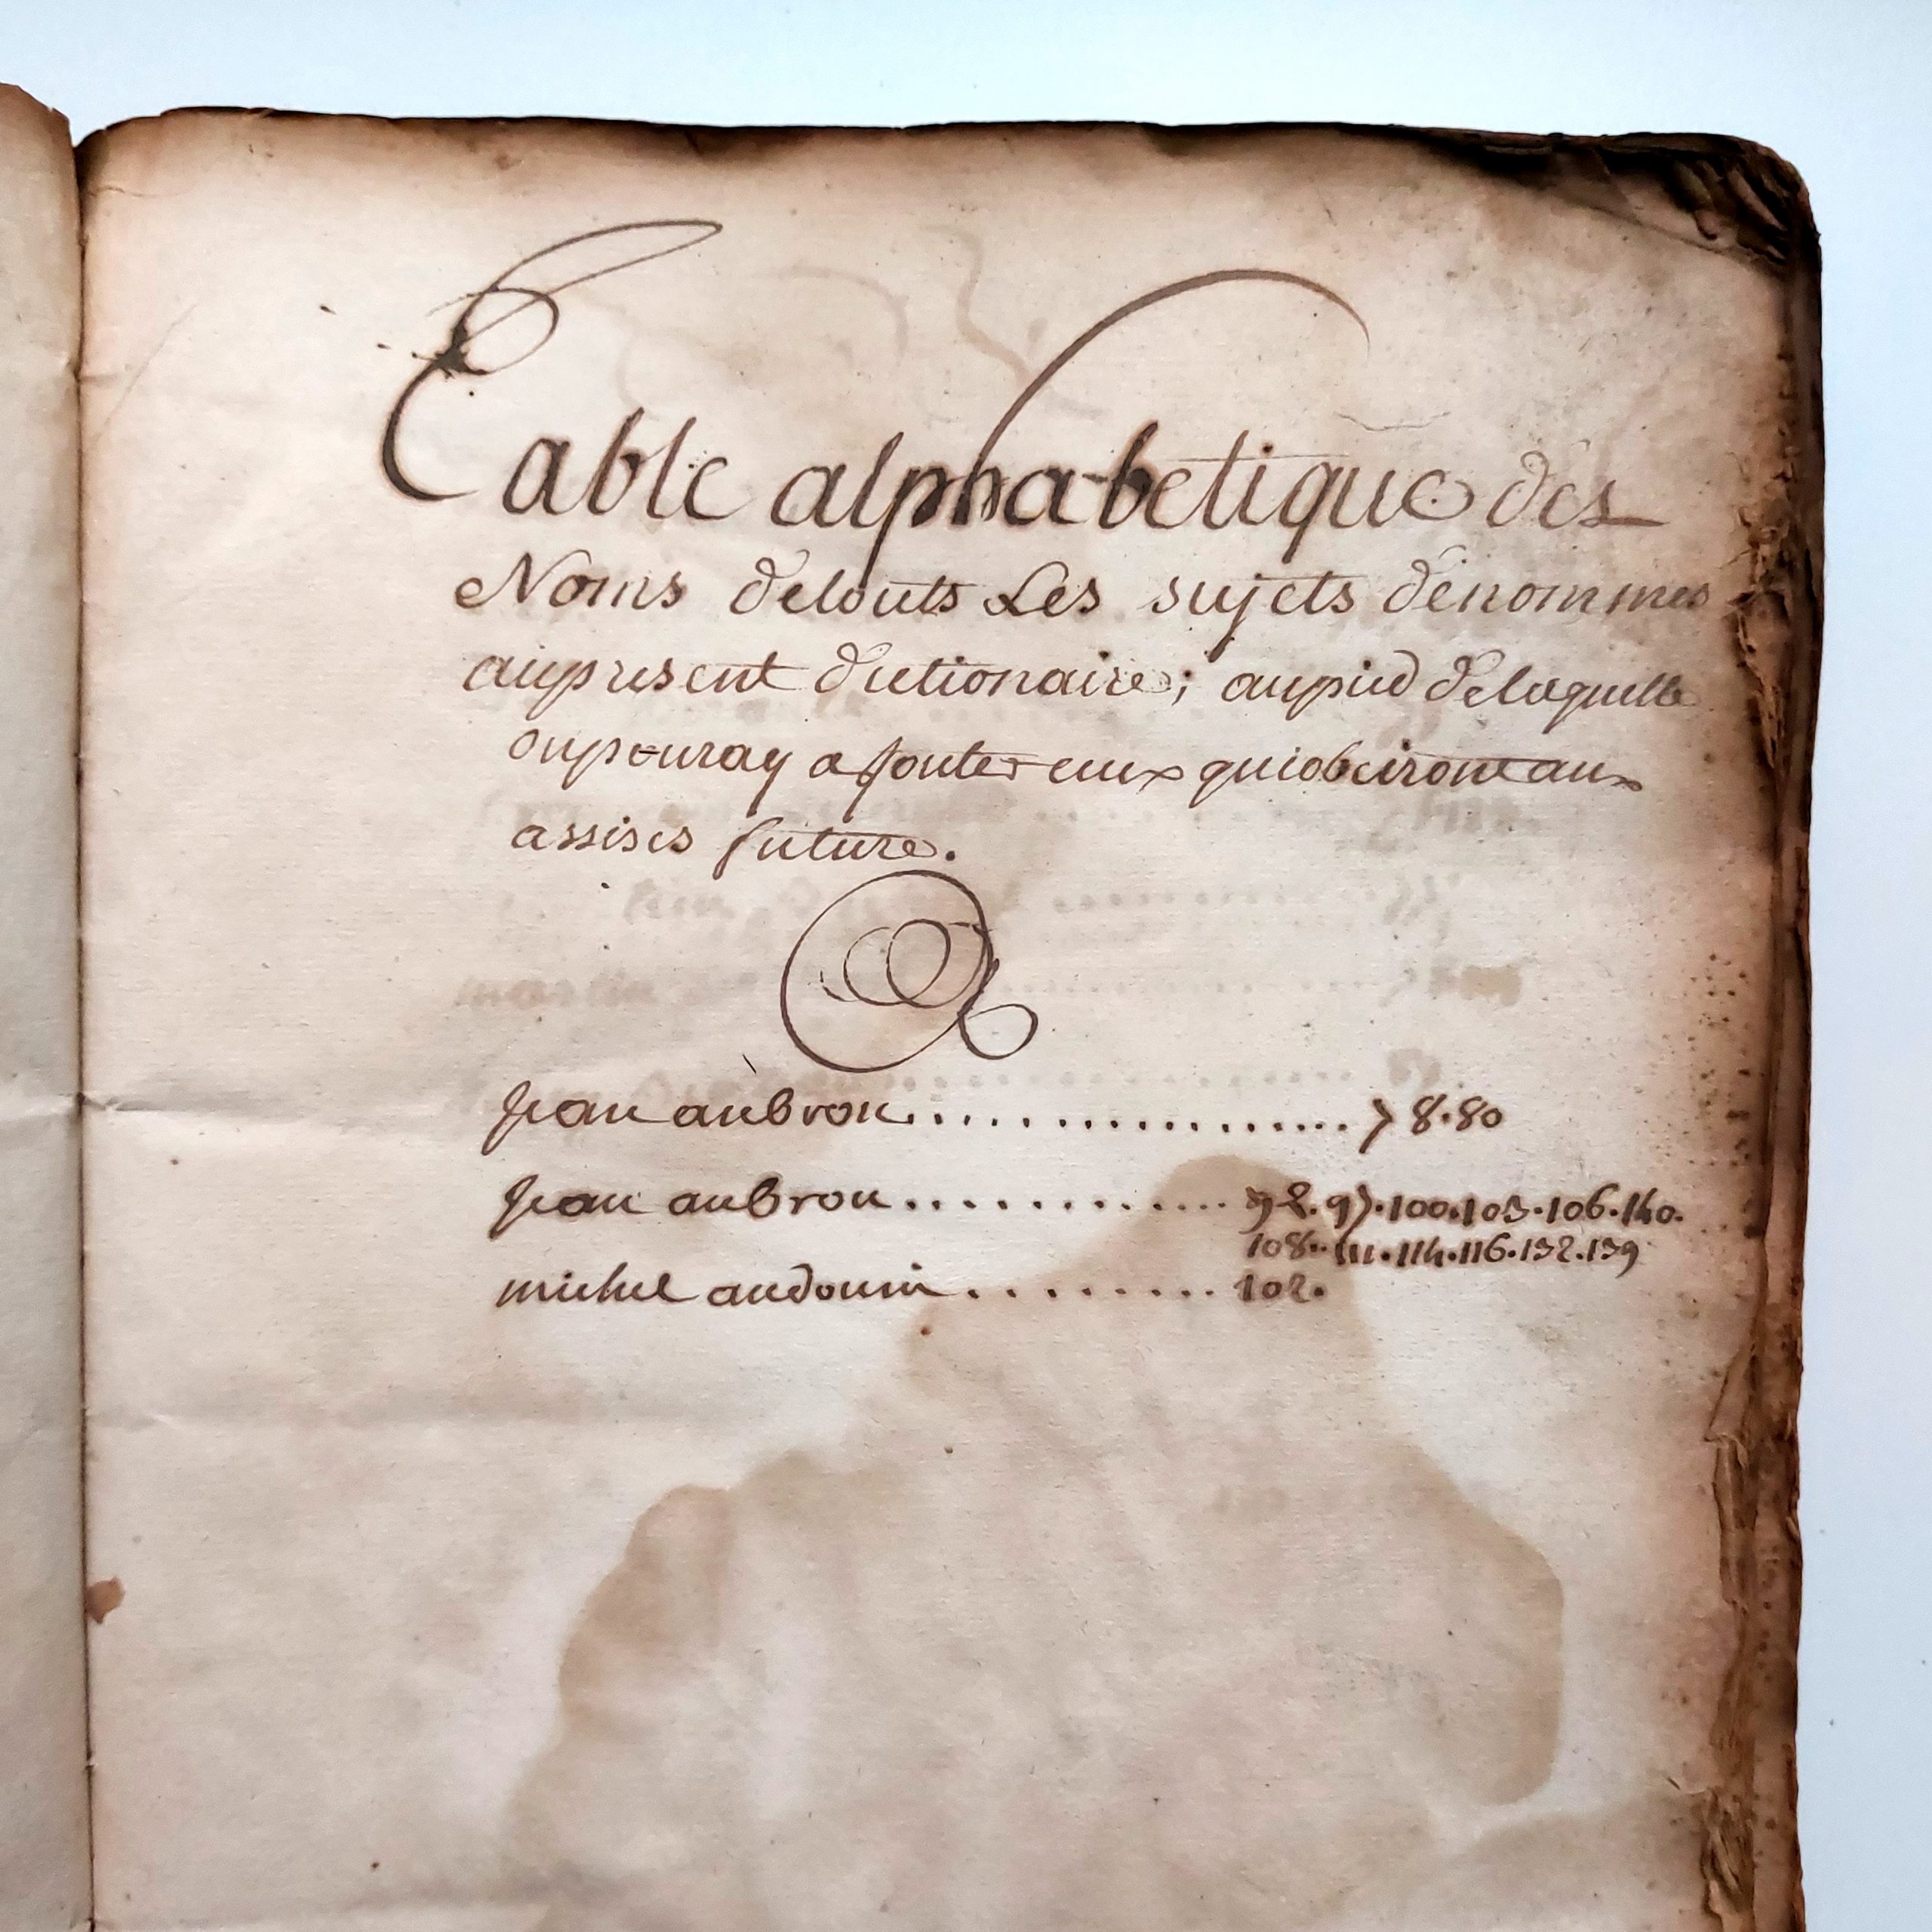 Table alphabetique des
Noms detouts Les sujets dénommes
aupresent dictionaire; aupied delaquelle
onpouray ajouter ceux quiobeiront aux
assises future.
Jean aubron.................. 78.80
Jean aubron............. 92.97.100.103.106.140.
108..111.114.116.132.139
michel audouin......... 102.